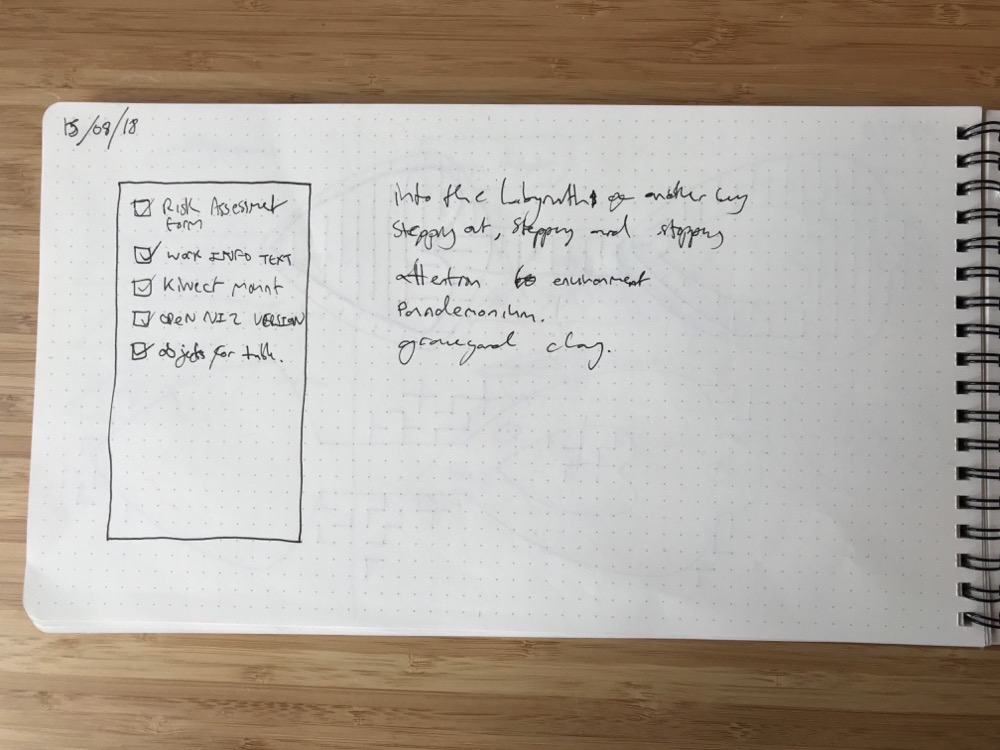 15/08/18
Risk Assesment
form
WORK INFO TEXT
Kinect Mount
OPEN NI 2 VERSION
objects for table.
into the Labyrinth of another
Stepping out, Stepping and stopping
Attention to environment
Pandemonium.
graveyard clay.